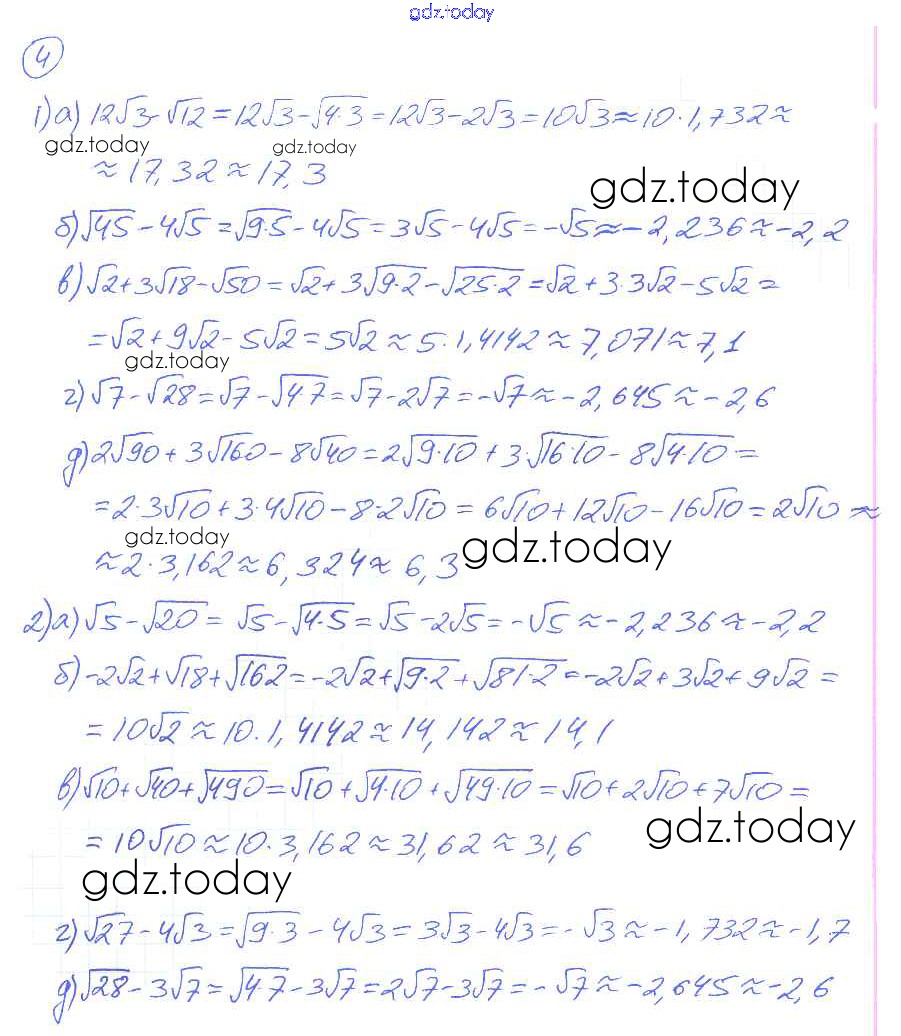 gdz.today
4
1) а) 12√3 - √12 = 12√3 - √4·3 = 12√3 - 2√3 = 10√3 ≈ 10·1,732 ≈
gdz.today gdz.today
≈ 17,32 ≈ 17,3
gdz.today
б) √45 - 4√5 = √9·5 - 4√5 = 3√5 - 4√5 = -√5 ≈ -2,236 ≈ -2,2
в) √2 + 3√18 - √50 = √2 + 3√9·2 - √25·2 = √2 + 3·3√2 - 5√2 =
= √2 + 9√2 - 5√2 = 5√2 ≈ 5·1,4142 ≈ 7,071 ≈ 7,1
gdz.today
г) √7 - √28 = √7 - √4·7 = √7 - 2√7 = -√7 ≈ -2,645 ≈ -2,6
д) 2√90 + 3√160 - 8√40 = 2√9·10 + 3·√16·10 - 8√4·10 =
= 2·3√10 + 3·4√10 - 8·2√10 = 6√10 + 12√10 - 16√10 = 2√10 ≈
gdz.today
≈ 2·3,162 ≈ 6,324 ≈ 6,3
gdz.today
2) а) √5 - √20 = √5 - √4·5 = √5 - 2√5 = -√5 ≈ -2,236 ≈ -2,2
б) -2√2 + √18 + √162 = -2√2 + √9·2 + √81·2 = -2√2 + 3√2 + 9√2 =
= 10√2 ≈ 10·1,4142 ≈ 14,142 ≈ 14,1
в) √10 + √40 + √490 = √10 + √4·10 + √49·10 = √10 + 2√10 + 7√10 =
= 10√10 ≈ 10·3,162 ≈ 31,62 ≈ 31,6
gdz.today
gdz.today
г) √27 - 4√3 = √9·3 - 4√3 = 3√3 - 4√3 = -√3 ≈ -1,732 ≈ -1,7
д) √28 - 3√7 = √4·7 - 3√7 = 2√7 - 3√7 = -√7 ≈ -2,645 ≈ -2,6